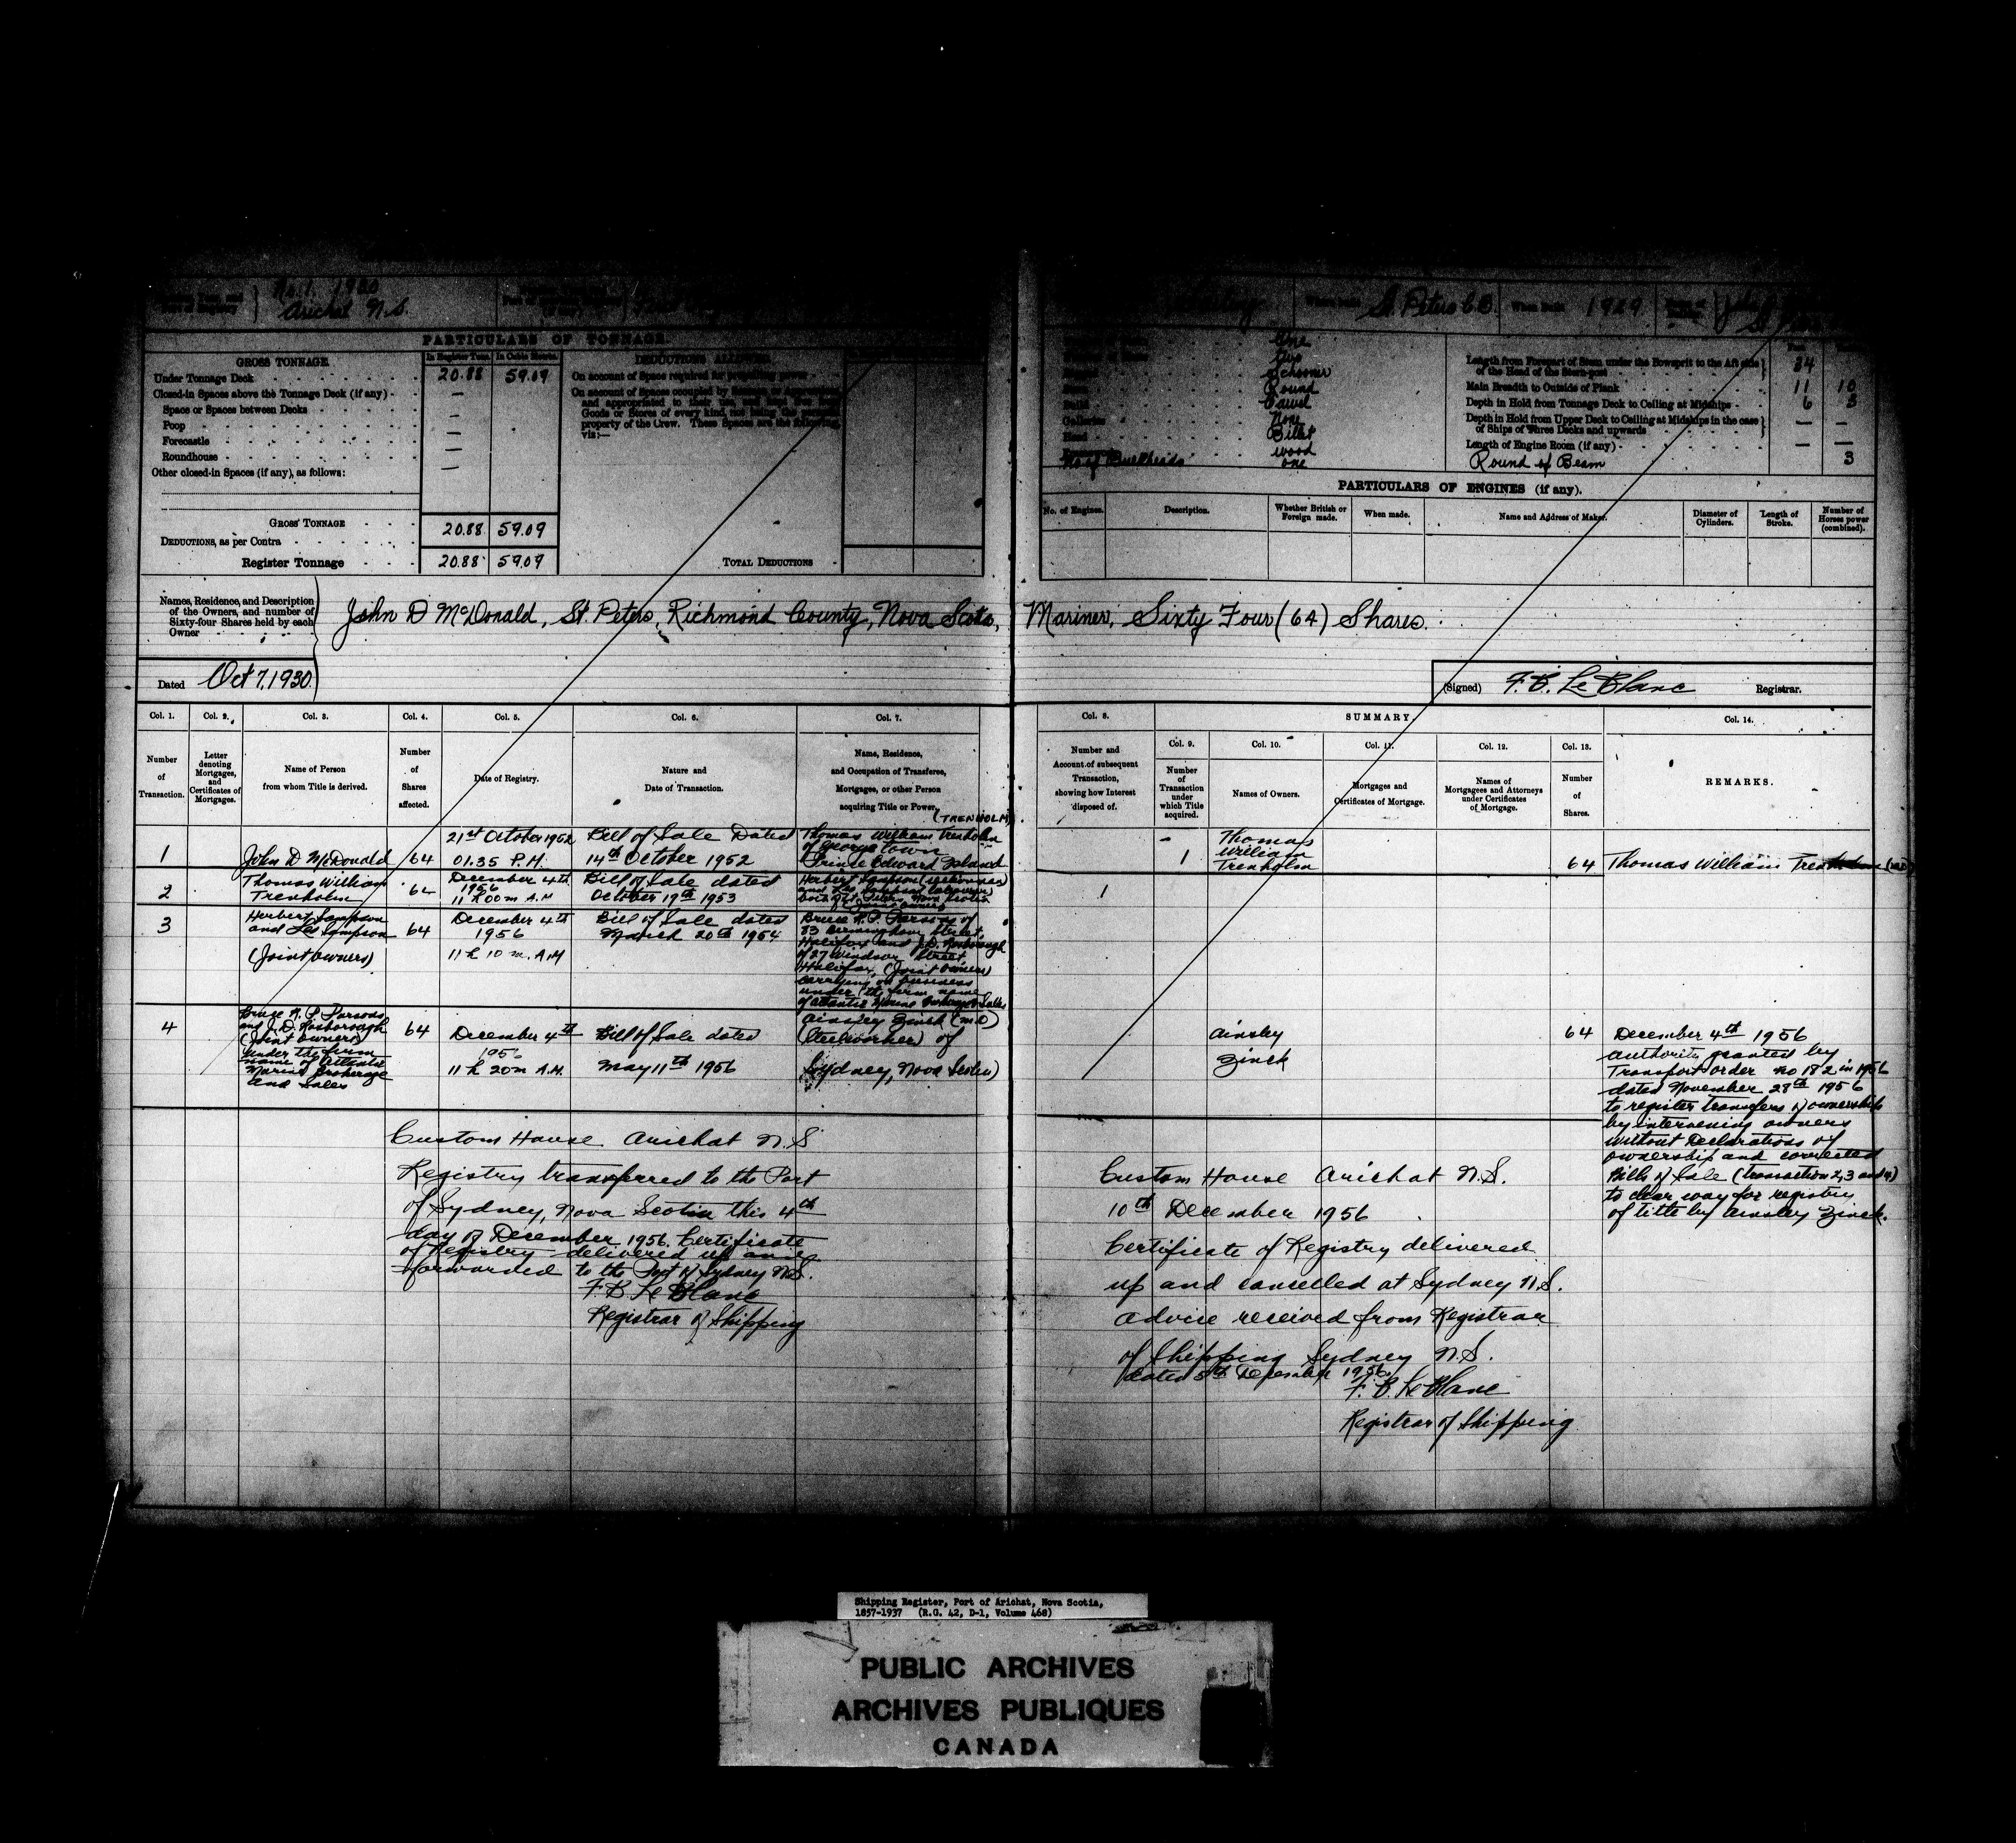 No. 1. 1930
Arichat N.S.
Where built St. Peters C.B. When built 1929
PARTICULARS OF TONNAGE
GROSS TONNAGE In Register Tons. In Cubic Metres. DEDUCTIONS ALLOWED
Under Tonnage Deck 20.88 59.09
Closed-in Spaces above the Tonnage Deck (if any)
Space or Spaces between Decks
Poop
Forecastle
Roundhouse
Other closed-in Spaces (if any), as follows:
GROSS TONNAGE 20.88 59.09
DEDUCTIONS, as per Contra
Register Tonnage 20.88 59.09
On account of Space required for propelling power
On account of Spaces occupied by
and appropriated to their use, and kept free from
Goods or Stores of every kind, not being the personal
property of the Crew. These Spaces are the following,
viz:—
TOTAL DEDUCTIONS
One
Two
Schooner
Round
Build Carvel
Galleries None
Head Billet
wood
No of Bulkheads one
Length from Forepart of Stem under the Bowsprit to the Aft side
of the Head of the Stern-post 34
Main Breadth to Outside of Plank 11 10
Depth in Hold from Tonnage Deck to Ceiling at Midships 6 3
Depth in Hold from Upper Deck to Ceiling at Midships in the case
of Ships of Three Decks and upwards — —
Length of Engine Room (if any) — —
Round of Beam 3
PARTICULARS OF ENGINES (if any).
No. of Engines. Description. Whether British or Foreign made. When made. Name and Address of Maker. Diameter of Cylinders. Length of Stroke. Number of Horses power (combined).
Names, Residence, and Description
of the Owners, and number of
Sixty-four Shares held by each
Owner
John D McDonald, St. Peters, Richmond County, Nova Scotia, Mariner, Sixty Four (64) Shares.
Dated Oct 7, 1930.
(Signed) F. B. LeBlanc Registrar.
Col. 1. Col. 2. Col. 3. Col. 4. Col. 5. Col. 6. Col. 7. Col. 8. SUMMARY. Col. 14.
Col. 9. Col. 10. Col. 11. Col. 12. Col. 13.
Number of Transaction.
Letter denoting Mortgages, and Certificates of Mortgages.
Name of Person from whom Title is derived.
Number of Shares affected.
Date of Registry.
Nature and Date of Transaction.
Name, Residence, and Occupation of Transferee, Mortgagee, or other Person acquiring Title or Power.
Number and Account of subsequent Transaction, showing how Interest disposed of.
Number of Transaction under which Title acquired.
Names of Owners.
Mortgages and Certificates of Mortgage.
Names of Mortgagees and Attorneys under Certificates of Mortgage.
Number of Shares.
REMARKS.
(TRENHOLM)
1 John D McDonald 64
21st October 1952
01.35 P.M.
Bill of Sale Dated
14th October 1952
Thomas William Trenholm
of Georgetown
Prince Edward Island
1
Thomas
William
Trenholm
64 Thomas William
2 Thomas William
Trenholm
64
December 4th
1956
11 h 00 m A.M
Bill of Sale dated
October 19th 1953
Herbert Sampson
1
3 Herbert Sampson
and Les Sampson
(Joint owners)
64
December 4th
1956
11 h 10 m. A.M
Bill of Sale dated
March 20th 1954
Bruce R. P. Parsons of
83 Birmingham Street,
Halifax and J.D. Rosborough
of 27 Windsor Street
Halifax, (Joint owners)
carrying on business
under the firm name
of Atlantic Marine Brokerage & Sales
4 Bruce R. P. Parsons
and J. D. Rosborough
(Joint owners)
under the firm
name of Atlantic
Marine Brokerage
and Sales
64
December 4th
1956
11 h 20 m A.M.
Bill of Sale dated
May 11th 1956
Ainsley Zinck
(Steelworker) of
Sydney, Nova Scotia)
Ainsley
Zinck
64
December 4th 1956
authority granted by
Transport order no 182 in 1956
dated November 28th 1956
to register transfers of ownership
by intervening owners
without Declarations of
ownership and corrected
Bills of Sale (transaction 2, 3 and 4)
to clear way for registry
of title by Ainsley Zinck.
Custom House Arichat N.S
Registry transferred to the Port
of Sydney, Nova Scotia this 4th
day of December 1956. Certificate
of Registry delivered up and
forwarded to the Port of Sydney N.S.
F. B. LeBlanc
Registrar of Shipping
Custom House Arichat N.S.
10th December 1956
Certificate of Registry delivered
up and cancelled at Sydney N.S.
advice received from Registrar
of Shipping Sydney N.S.
dated 5th December 1956.
F. B. LeBlanc
Registrar of Shipping
Shipping Register, Port of Arichat, Nova Scotia,
1857-1937 (R.G. 42, D-1, Volume 468)
PUBLIC ARCHIVES
ARCHIVES PUBLIQUES
CANADA